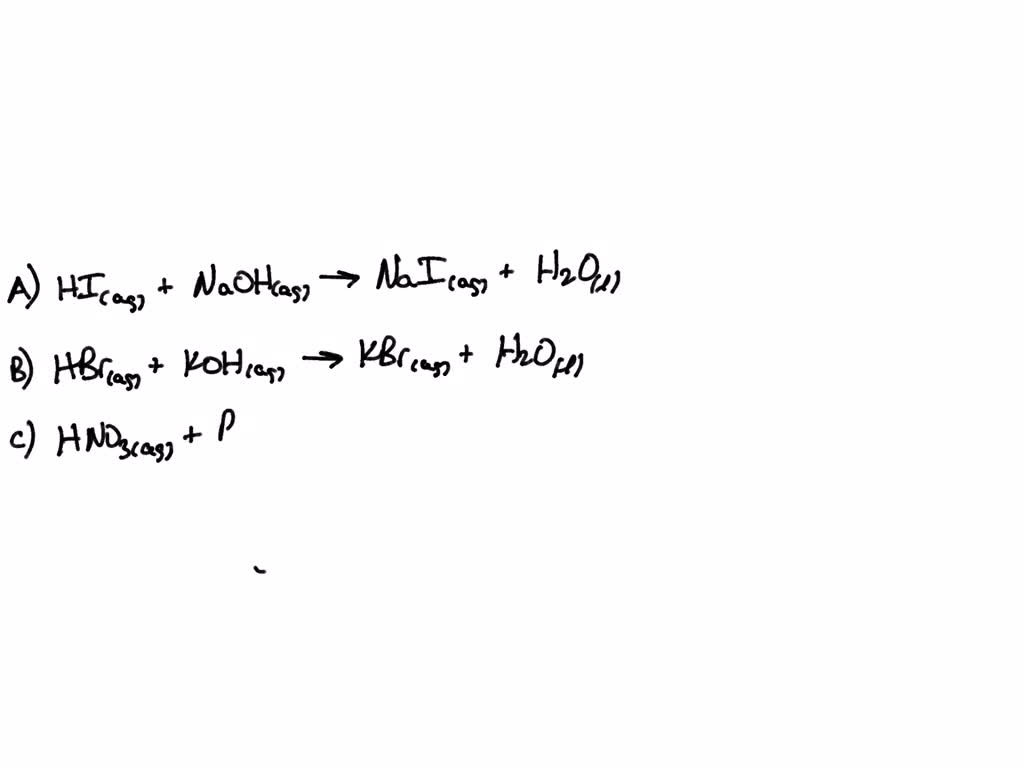 A) HI(aq) + NaOH(aq) → NaI(aq) + H2O(l)
B) HBr(aq) + KOH(aq) → KBr(aq) + H2O(l)
C) HNO3(aq) + P